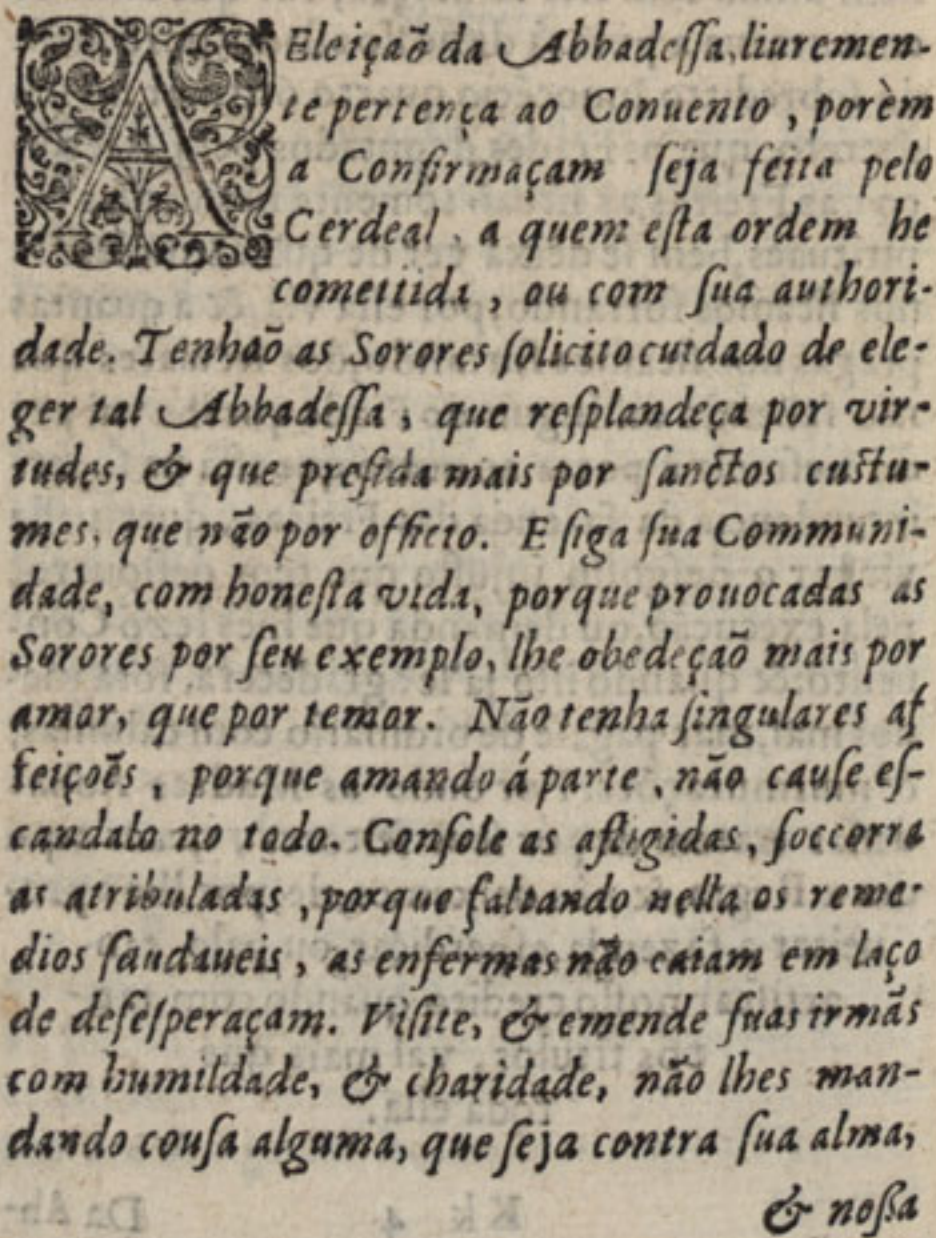 A Eleiçaõ da Abbadeſſa, liuremen-
te pertença ao Conuento, porèm
a Confirmaçam ſeja feita pelo
Cerdeal, a quem eſta ordem he
comettida, ou com ſua authori-
dade. Tenhaõ as Sorores ſolicito cuidado de ele-
ger tal Abbadeſſa, que reſplandeça por vir-
tudes, & que preſida mais por ſanctos cuſtu-
mes, que não por officio. E ſiga ſua Communi-
dade, com honeſta vida, porque prouocadas as
Sorores por ſeu exemplo, lhe obedeção mais por
amor, que por temor. Não tenha ſingulares af
feiçoẽs, porque amando á parte, não cauſe eſ-
candalo no todo. Conſole as afligidas, ſoccorra
as atribuladas, porque faltando nella os reme-
dios ſaudaueis, as enfermas não caiam em laço
de deſeſperaçam. Viſite, & emende ſuas irmãs
com humildade, & charidade, não lhes man-
dando couſa alguma, que ſeja contra ſua alma,
& noſſa